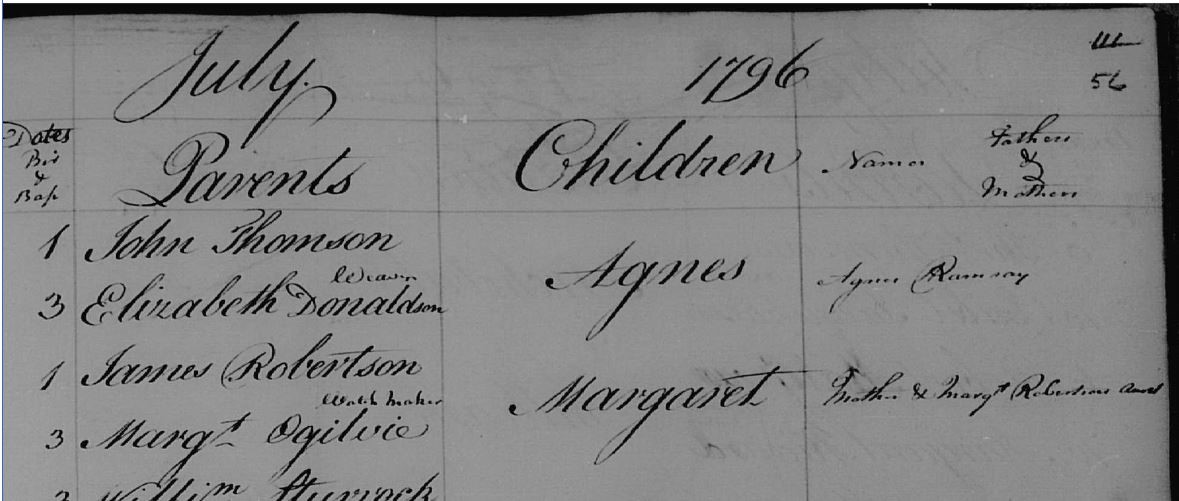 July. 1796
111
56
Dates
Birs
&
Bap
Parents
Children
Names
Fathers
&
Mothers
1 John Thomson
Weaver
3 Elizabeth Donaldson
Agnes
Agnes Ramsay
1 James Robertson
Watch Maker
3 Margt Ogilvie
Margaret
Mother & Margt Robertson Aunt
3 Willim Sturrock